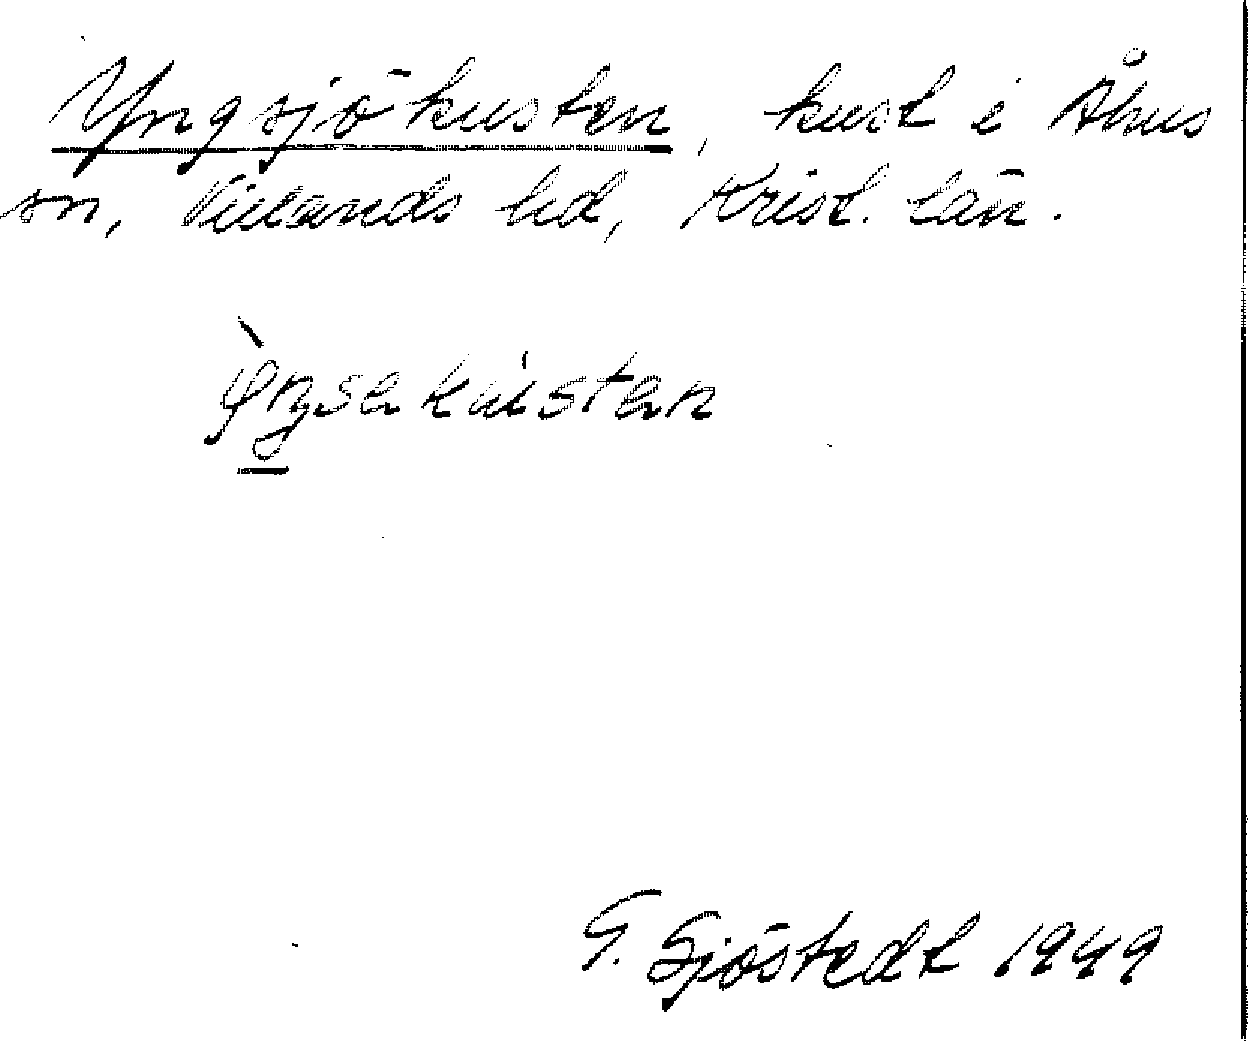 Yngsjökusten, kust i Åhus
sn, Villands hd, Krist. län.
G. Sjöstedt 1949